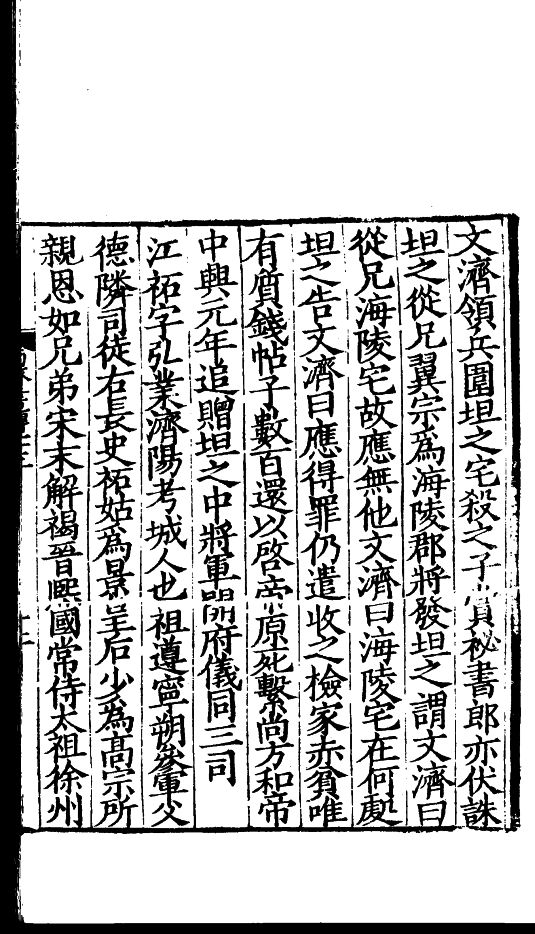 文濟領兵圍坦之宅殺之子賞祕書郎亦伏誅
坦之從兄翼宗爲海陵郡將發坦之謂文濟曰
從兄海陵宅故應無他文濟曰海陵宅在何處
坦之告文濟曰應得罪仍遣收之檢家赤貧唯
有質錢帖子數百還以啓帝原死繫尚方和帝
中興元年追贈坦之中將軍開府儀同三司
江祏字弘業濟陽考城人也祖遵寧朔參軍父
德隣司徒右長史祏姑爲景皇后少為高宗所
親恩如兄弟宋末解褐晉熙國常侍太祖徐州